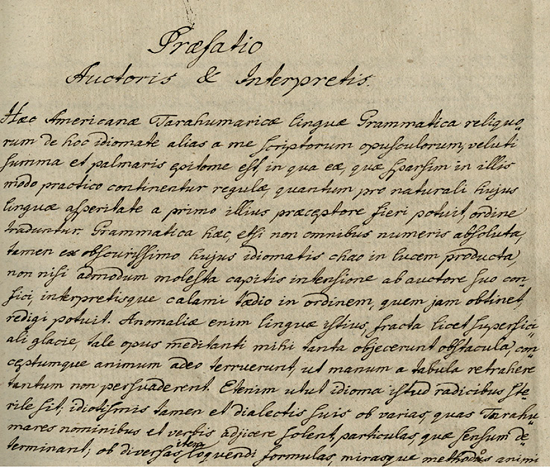 Præfatio
Auctoris & Interpretis.
Hæc Americanæ Tarahumaricæ linguæ Grammatica reliquo-
rum de hoc idiomate alias a me scriptorum opusculorum, veluti
summa et palmaris epitome est, in qua eæ, quæ sparsim in illis
modo practico continentur regulæ, quantum pro naturali hujus
linguæ asperitate a primo illius præceptore fieri potuit, ordine
traduntur. Grammatica hæc, etsi non omnibus numeris absoluta,
tamen ex obscurissimo hujus idiomatis chao in lucem producta,
non nisi admodum molesta capitis intensione ab auctore suo con-
fici, interpretisque calami tædio in ordinem, quem jam obtinet,
redigi potuit. Anomaliæ enim linguæ istius, fracta licet superfici-
ali glacie, tale opus meditanti mihi tanta objecerunt obstacula, con-
ceptumque animum adeo terruerunt, ut manum a tabula retrahere
tantum non persvaderent. Etenim utut idioma istud radicibus ste-
rile sit, idiotismis tamen et dialectis suis ob varias, quas Tarahu-
mares nominibus et verbis adjicere solent, particulas, quæ sensum de-
terminant, ob diversas item loquendi formulas, mirasque methodus animi